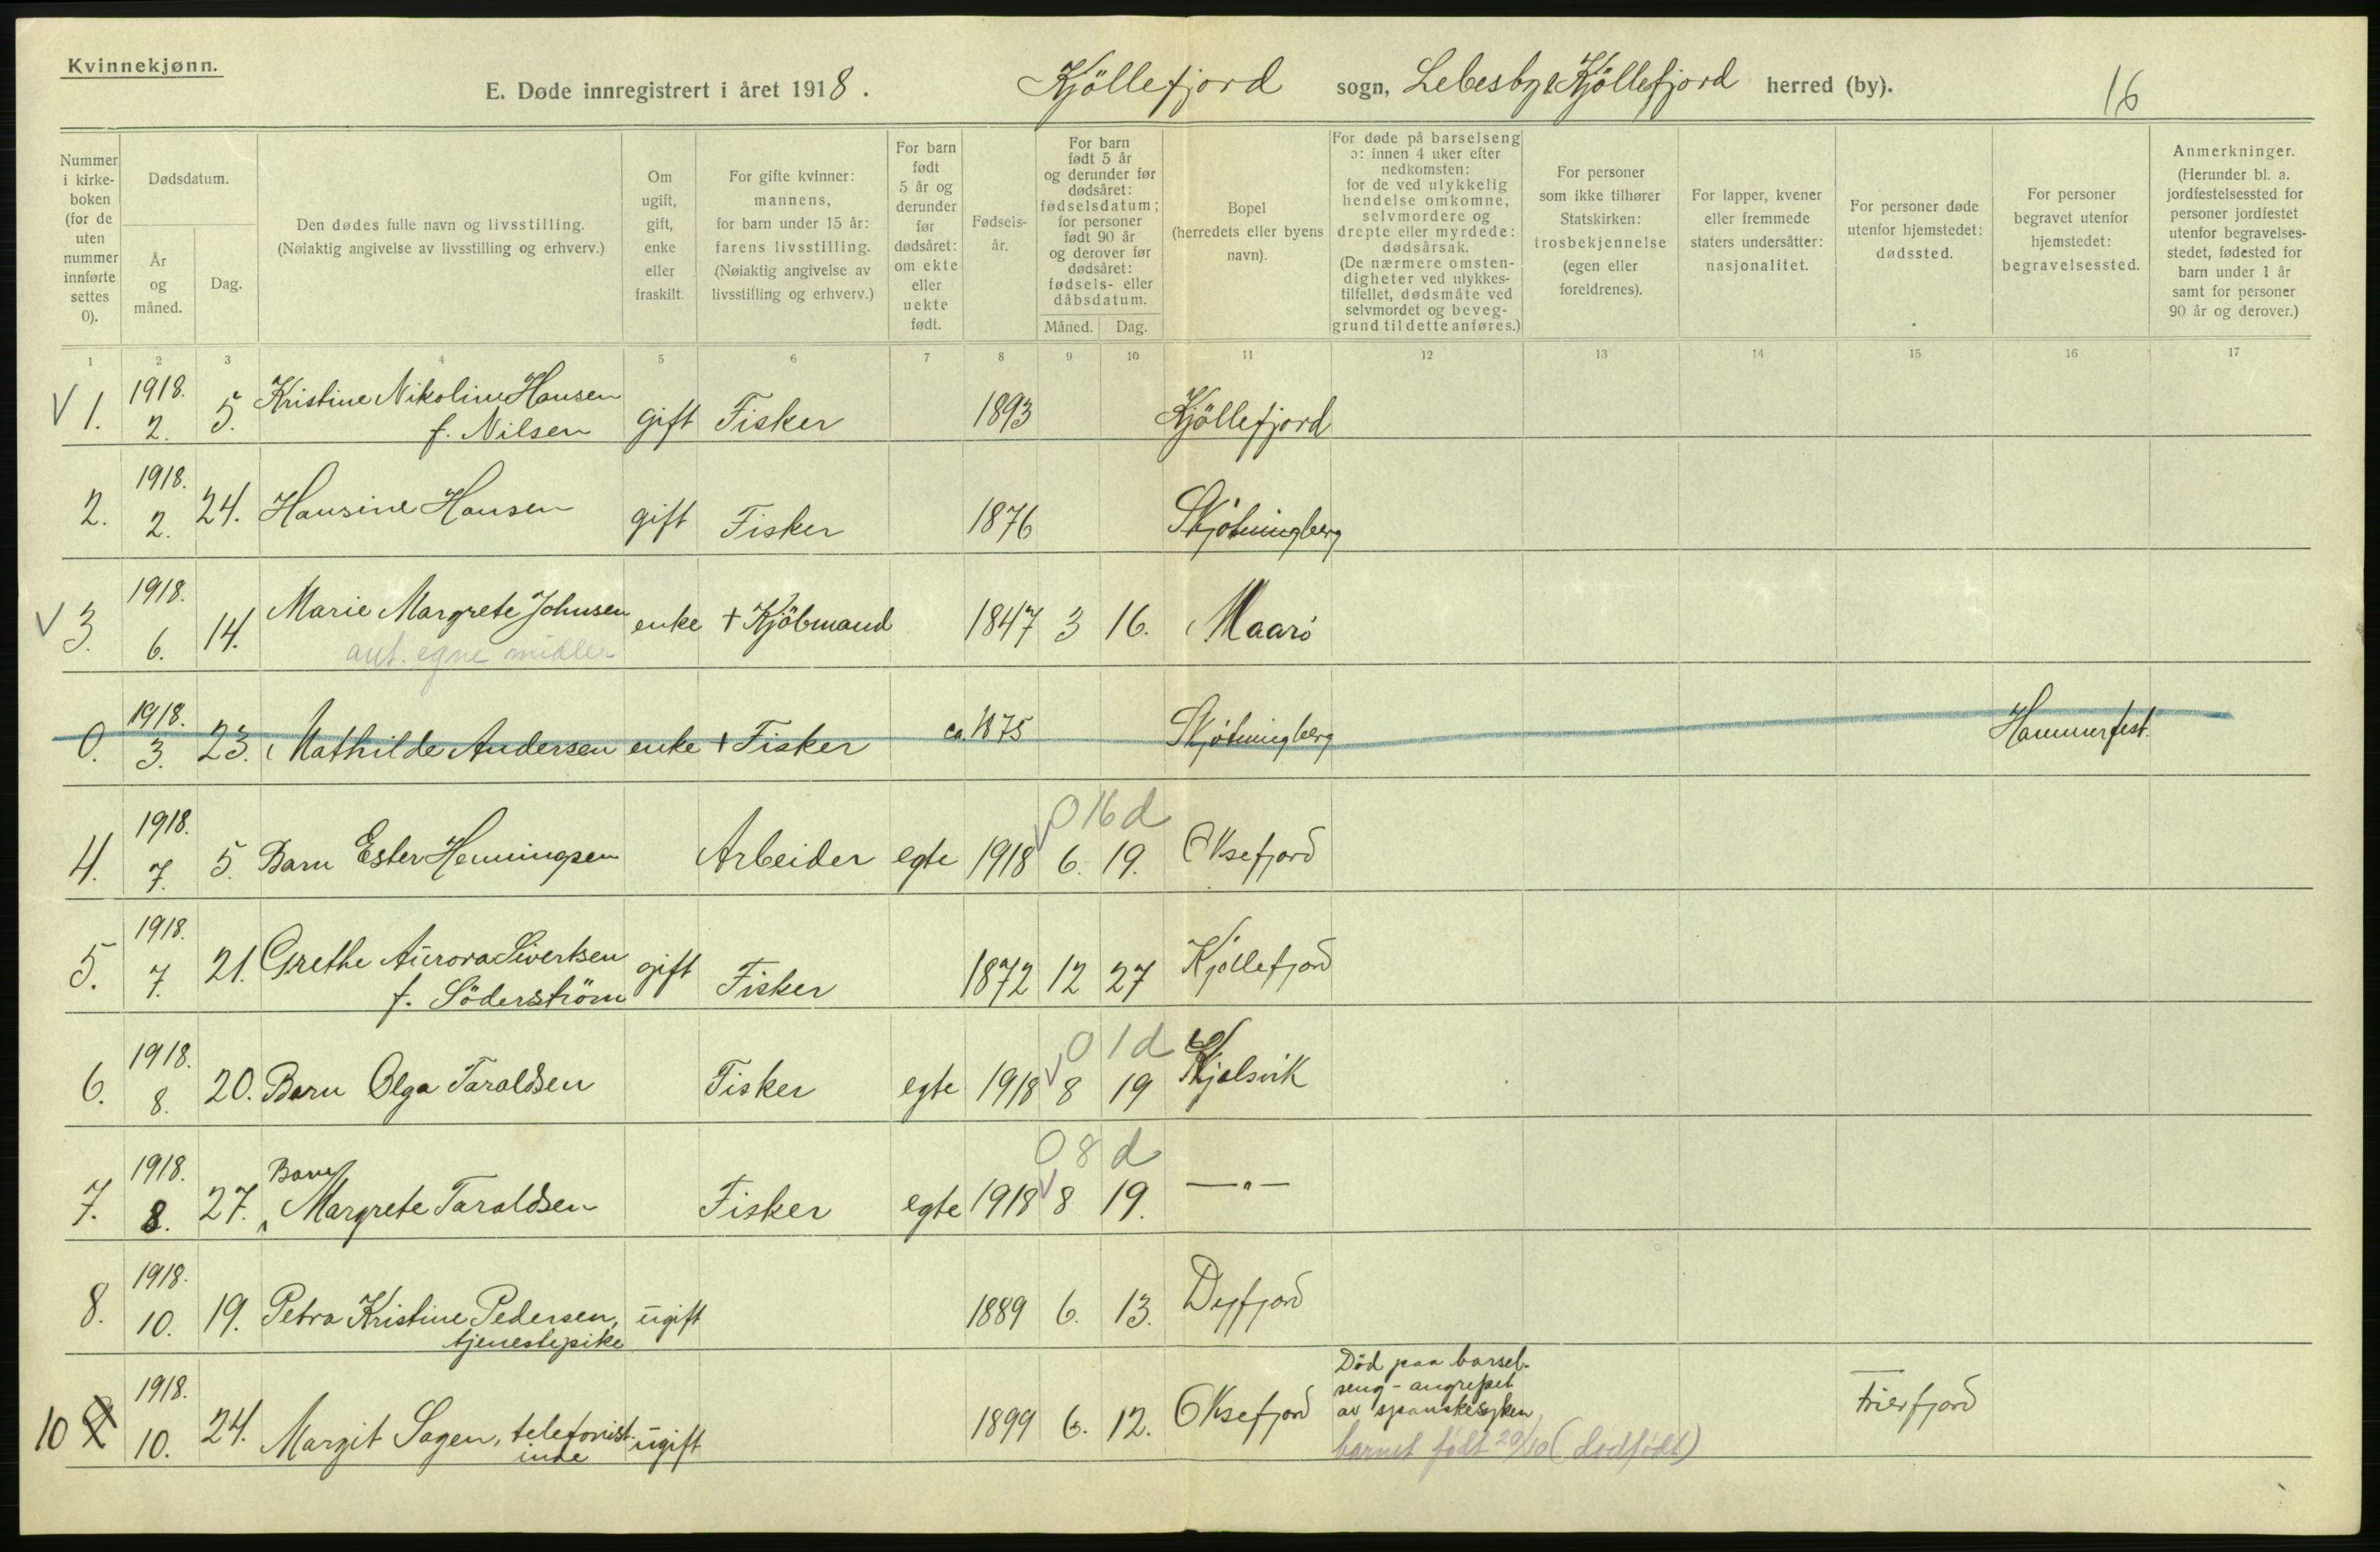 Kvinnekjønn.
E. Døde innregistrert i året 1918. Kjöllefjord sogn, Lebesby & Kjöllefjord herred (by). 16
Nummer i kirke-boken (for de uten nummer innførte settes 0).
Dødsdatum.
År og måned.
Dag.
Den dødes fulle navn og livsstilling.
(Nøiaktig angivelse av livsstilling og erhverv.)
Om ugift, gift, enke eller fraskilt.
For gifte kvinner: mannens, for barn under 15 år: farens livsstilling. (Nøiaktig angivelse av livsstilling og erhverv.)
For barn født 5 år og derunder før dødsåret: om ekte eller uekte født.
Fødsels-år.
For barn født 5 år og derunder før dødsåret: fødselsdatum; for personer født 90 år og derover før dødsåret: fødsels- eller dåbsdatum.
Måned. Dag.
Bopel (herredets eller byens navn).
For døde på barselseng ɔ: innen 4 uker efter nedkomsten: for de ved ulykkelig hendelse omkomne, selvmordere og drepte eller myrdede: dødsårsak. (De nærmere omsten-digheter ved ulykkes-tilfellet, dødsmåte ved selvmordet og beveg-grund til dette anføres.)
For personer som ikke tilhører Statskirken: trosbekjennelse (egen eller foreldrenes).
For lapper, kvener eller fremmede staters undersåtter: nasjonalitet.
For personer døde utenfor hjemstedet: dødssted.
For personer begravet utenfor hjemstedet: begravelsessted.
Anmerkninger. (Herunder bl. a. jordfestelsessted for personer jordfestet utenfor begravelses-stedet, fødested for barn under 1 år samt for personer 90 år og derover.)
1 2 3 4 5 6 7 8 9 10 11 12 13 14 15 16 17
V 1. 1918. 2. 5. Kristine Nikoline Hansen f. Nilsen gift Fisker 1893 Kjöllefjord
2. 1918. 2. 24. Hansine Hansen gift Fisker 1876 Skjötningberg
V 3. 1918. 6. 14. Marie Margrete Johnsen enke + Kjöbmand 1847 3 16. Maarö
ant. egne midler
0. 1918. 3. 23. Mathilde Andersen enke + Fisker ca. 1875 Skjötningberg Hammerfest.
0 16 d
4. 1918. 7. 5. Barn Ester Henningsen Arbeider egte 1918 6. 19. Oksefjord
5. 1918. 7. 21. Grethe Aurora Sivertsen f. Söderström gift Fisker 1872 12 27 Kjöllefjord
0 1 d
6. 1918. 8. 20. Barn Olga Taraldsen Fisker egte 1918 8 19 Skjelsvik
0 8 d
7. 1918. 8. 27. Barn Margrete Taraldsen Fisker egte 1918 8 19. —"—
8. 1918. 10. 19. Petra Kristine Pedersen, tjenestepike ugift 1889 6. 13. Dyfjord
10 1918. 10. 24. Margit Sagen, telefonist-inde ugift 1899 6. 12. Oksefjord Död paa barsel-seng - angrepet av spanskesyken Trierfjord
barnet født 20/10 (dødfødt)